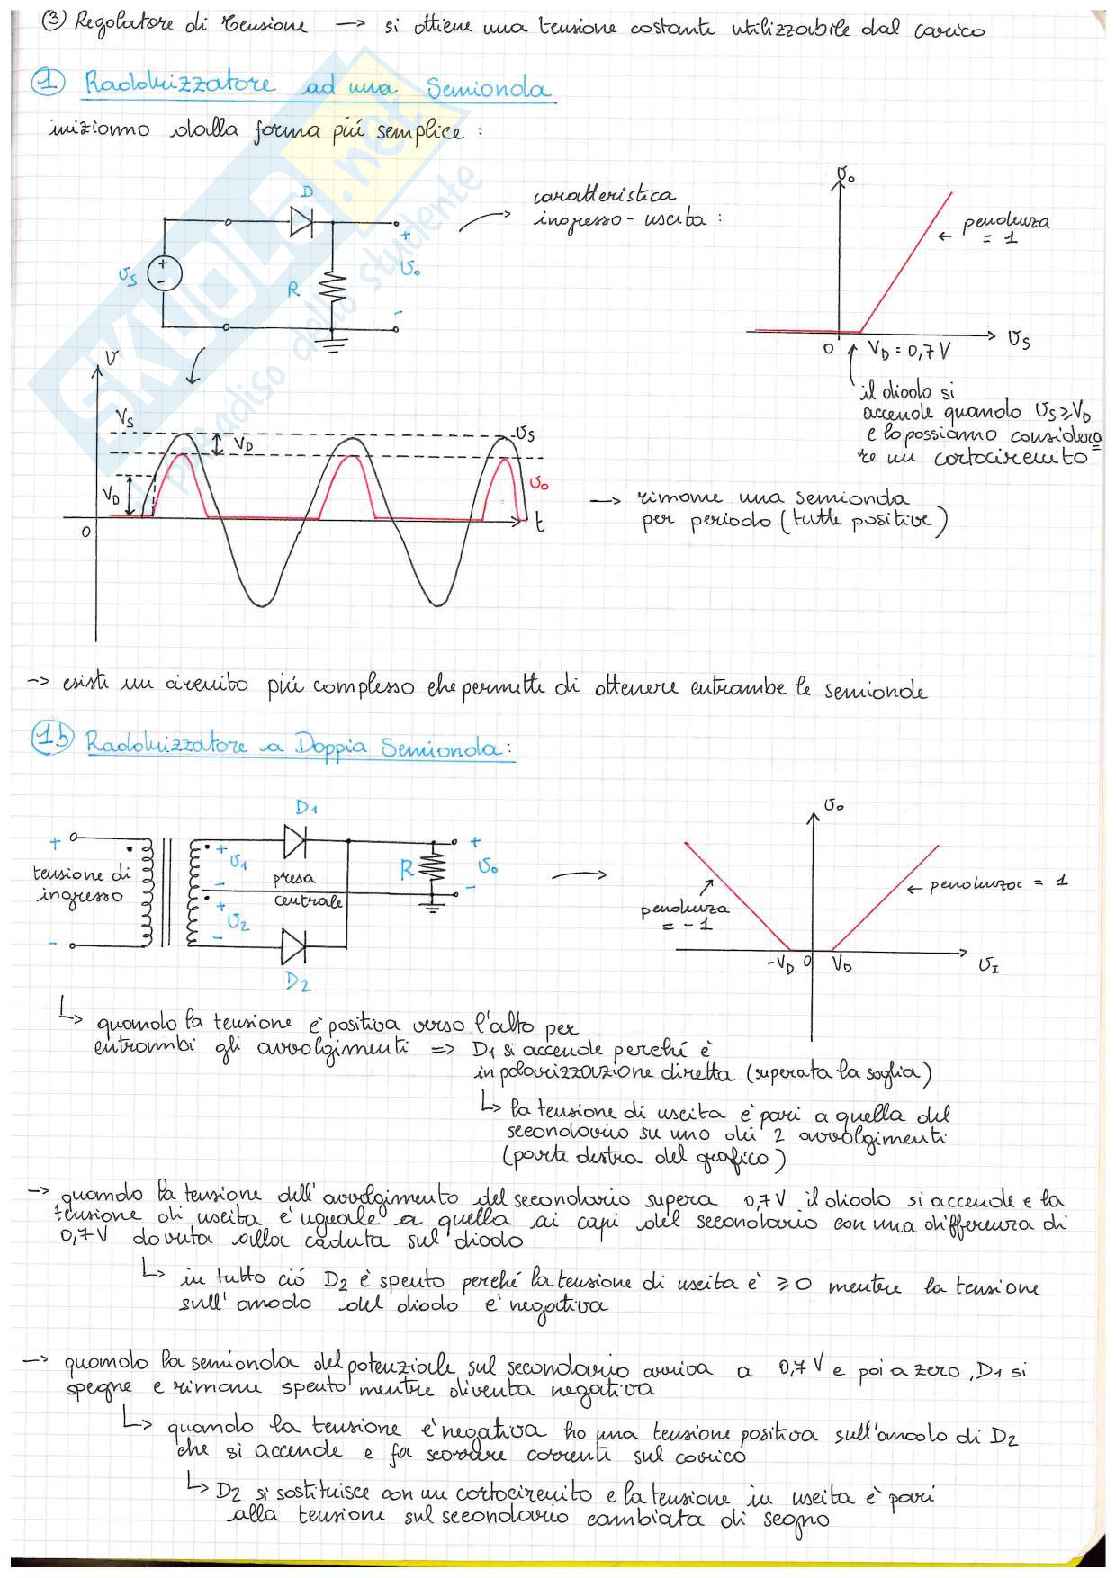 ③ Regolatore di Tensione → si ottiene una tensione costante utilizzabile dal carico
① Raddrizzatore ad una Semionda
iniziamo dalla forma più semplice :
D
υs
+
-
R
+
υo
-
caratteristica
ingresso-uscita :
υo
← pendenza
= 1
0
VD = 0,7 V
υs
il diodo si
accende quando υs ≥ VD
e lo possiamo considera=
re un cortocircuito
υ
Vs
VD
υs
VD
υo
0
t
→ rimane una semionda
per periodo (tutte positive)
→ esiste un circuito più complesso che permette di ottenere entrambe le semionde
①b Raddrizzatore a Doppia Semionda :
D1
+
tensione di
ingresso
-
+
υ1
-
+
υ2
-
presa
centrale
R
+
υo
-
D2
υo
pendenza
= -1
← pendenza = 1
-VD 0 VD
υI
↳ quando la tensione è positiva verso l'alto per
entrambi gli avvolgimenti => D1 si accende perché è
in polarizzazione diretta (superata la soglia)
↳ la tensione di uscita è pari a quella del
secondario su uno dei 2 avvolgimenti
(parte destra del grafico)
→ quando la tensione dell'avvolgimento del secondario supera 0,7 V il diodo si accende e la
tensione di uscita è uguale a quella ai capi del secondario con una differenza di
0,7 V dovuta alla caduta sul diodo
↳ in tutto ciò D2 è spento perché la tensione di uscita è ≥ 0 mentre la tensione
sull'anodo del diodo è negativa
→ quando la semionda del potenziale sul secondario arriva a 0,7 V e poi a zero, D1 si
spegne e rimane spento mentre diventa negativa
↳ quando la tensione è negativa ho una tensione positiva sull'anodo di D2
che si accende e fa scorrere correnti sul carico
↳ D2 si sostituisce con un cortocircuito e la tensione in uscita è pari
alla tensione sul secondario cambiata di segno
SKUOLA.net
paradiso dello studente